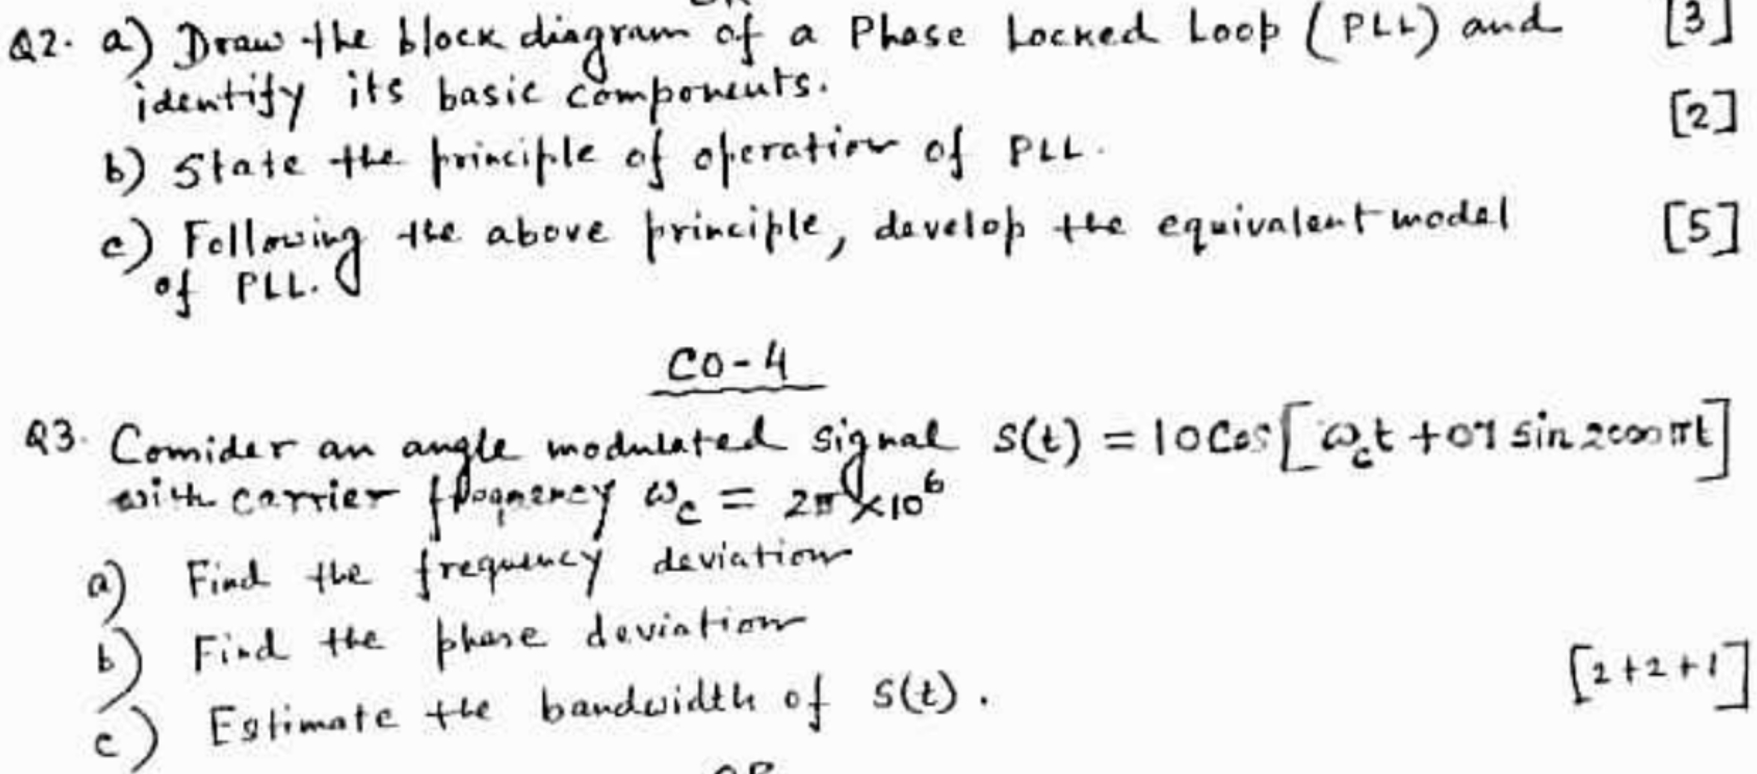 Q2. a) Draw the block diagram of a Phase Locked Loop (PLL) and [3]
identify its basic components.
[2]
b) State the principle of operation of PLL.
c) Following the above principle, develop the equivalent model [5]
of PLL.
CO-4
Q3. Consider an angle modulated signal s(t) = 10 Cos[ω_c t + 0.1 sin 2000πt]
with carrier frequency ω_c = 2π×10⁶
a) Find the frequency deviation
b) Find the phase deviation
[2+2+1]
c) Estimate the bandwidth of s(t).
OR